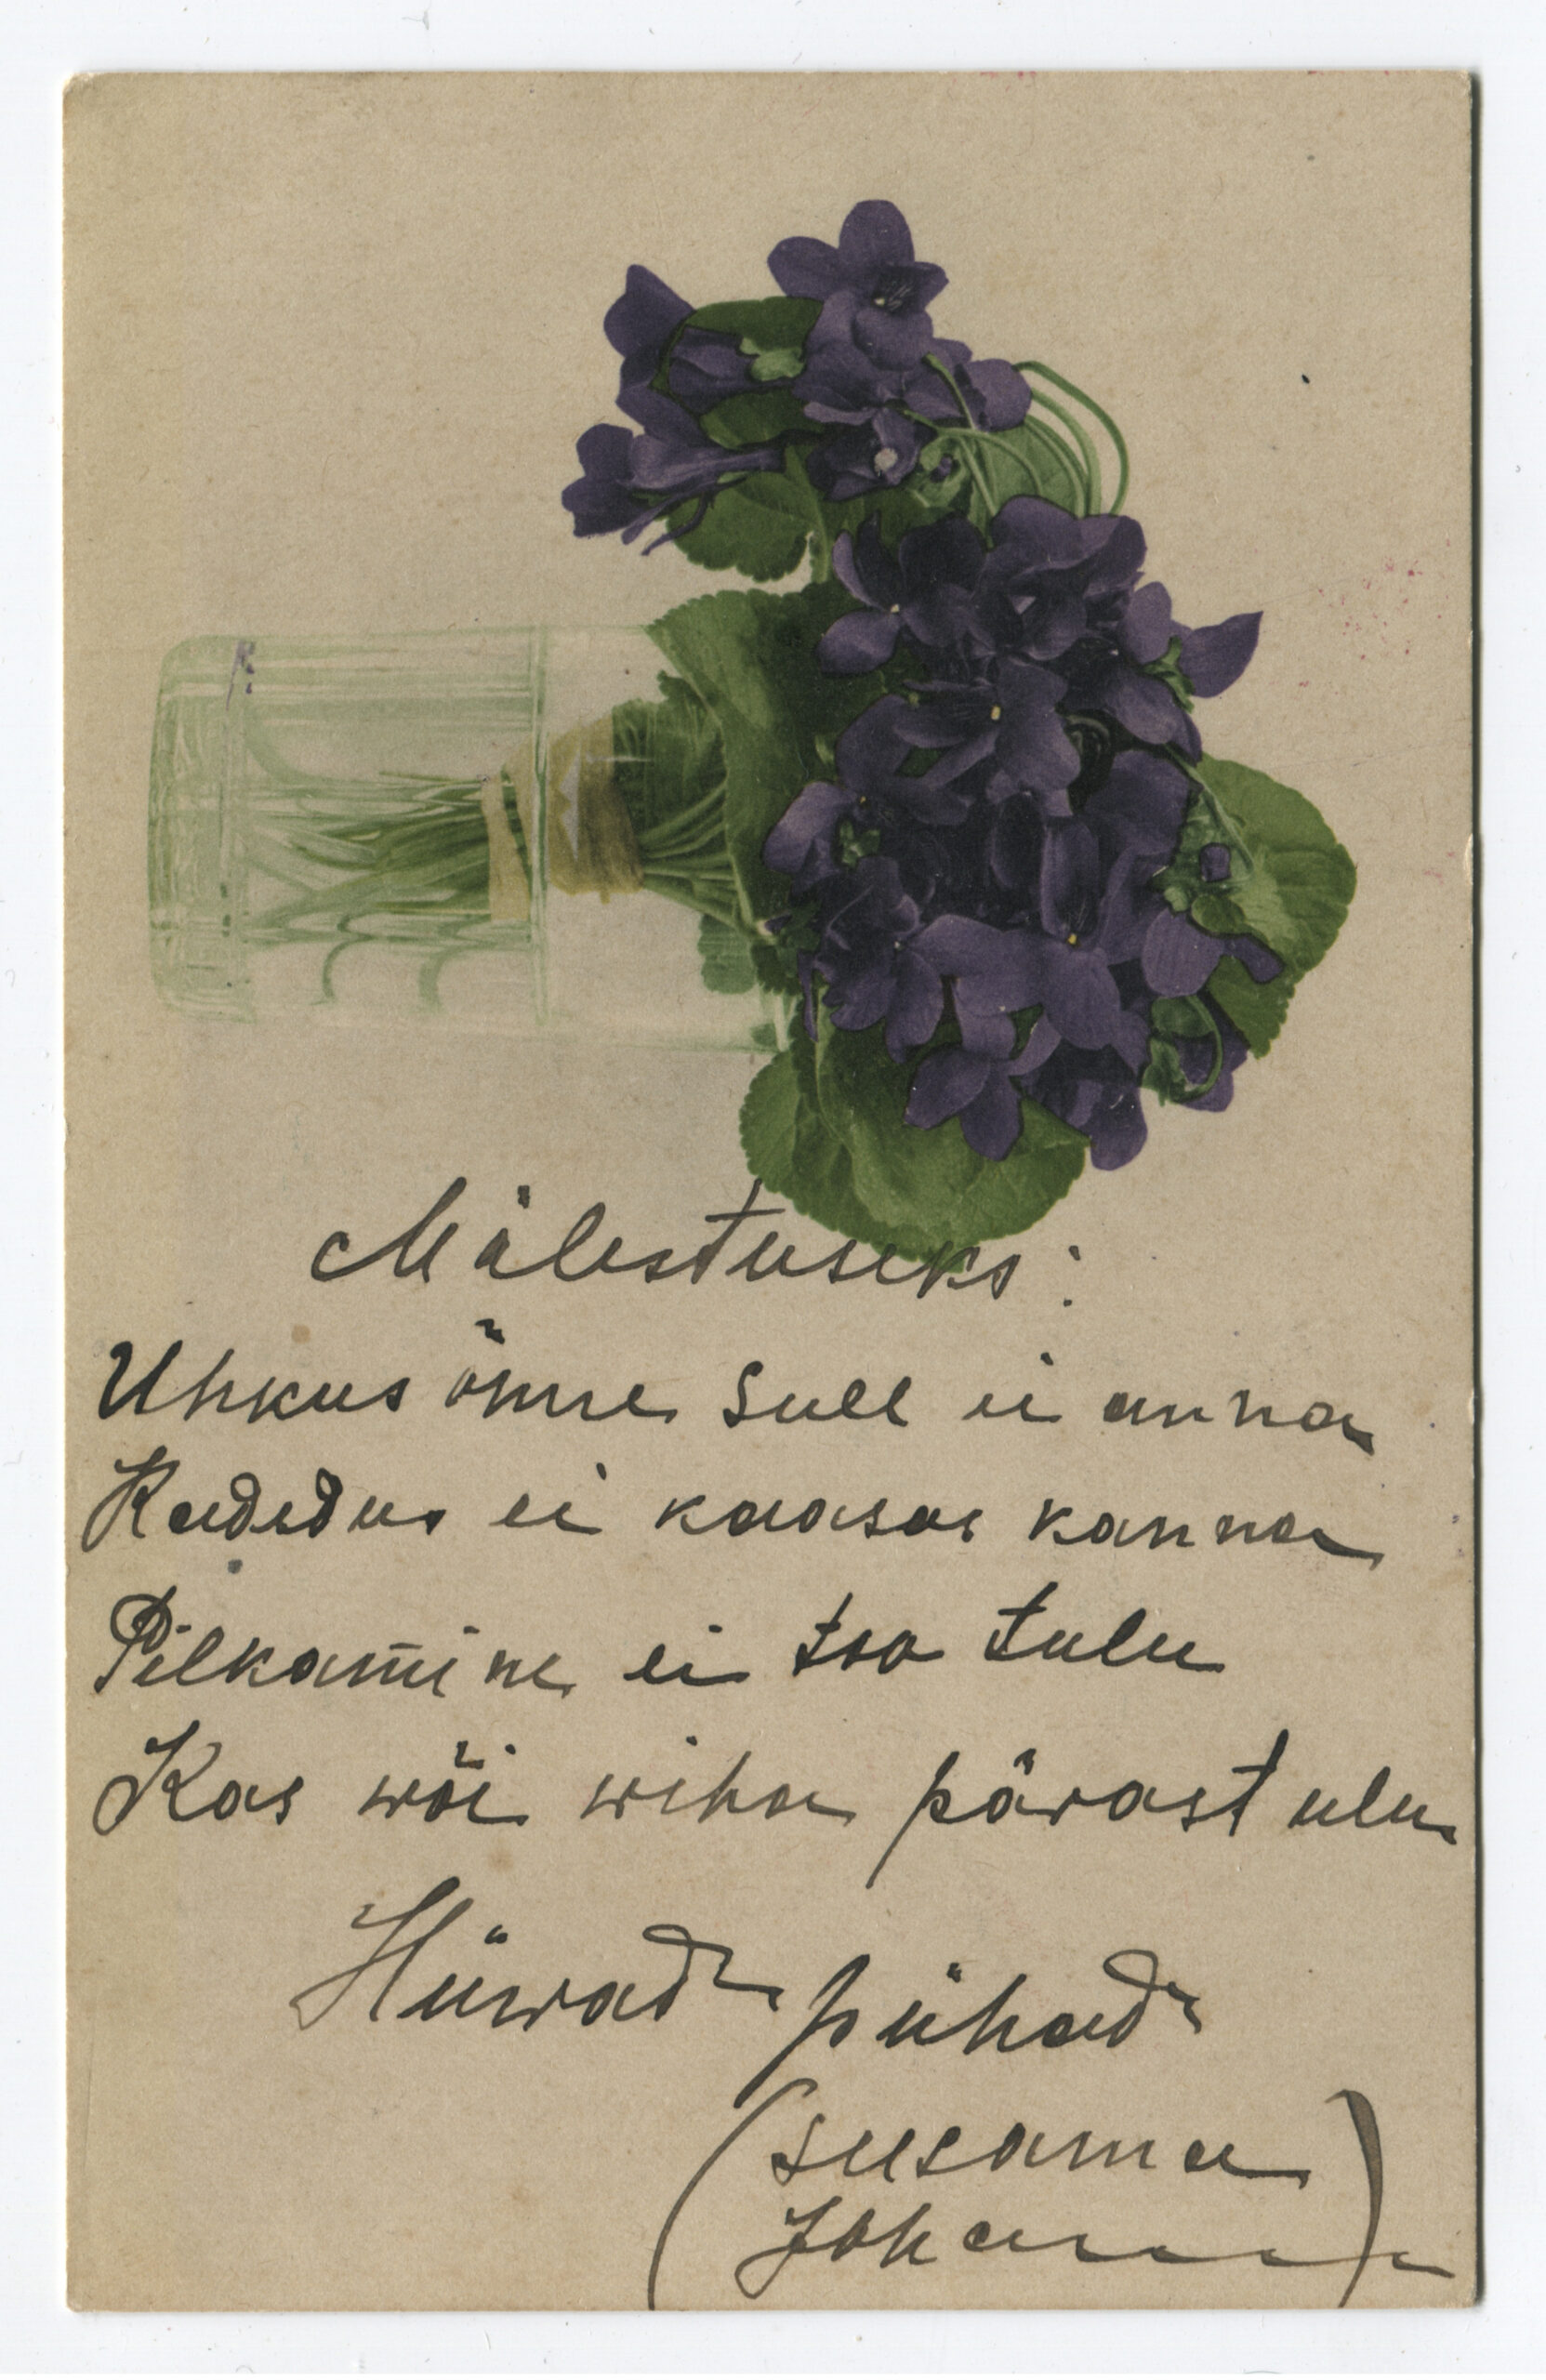 Mälestuseks:
Uhkus õnne sull ei anna
Kadedus ei kaasas kanna
Pilkamine ei too tulu
Kas wõi wiha pärast ulu
Hüwad pühad
(Susanna
Johanson)